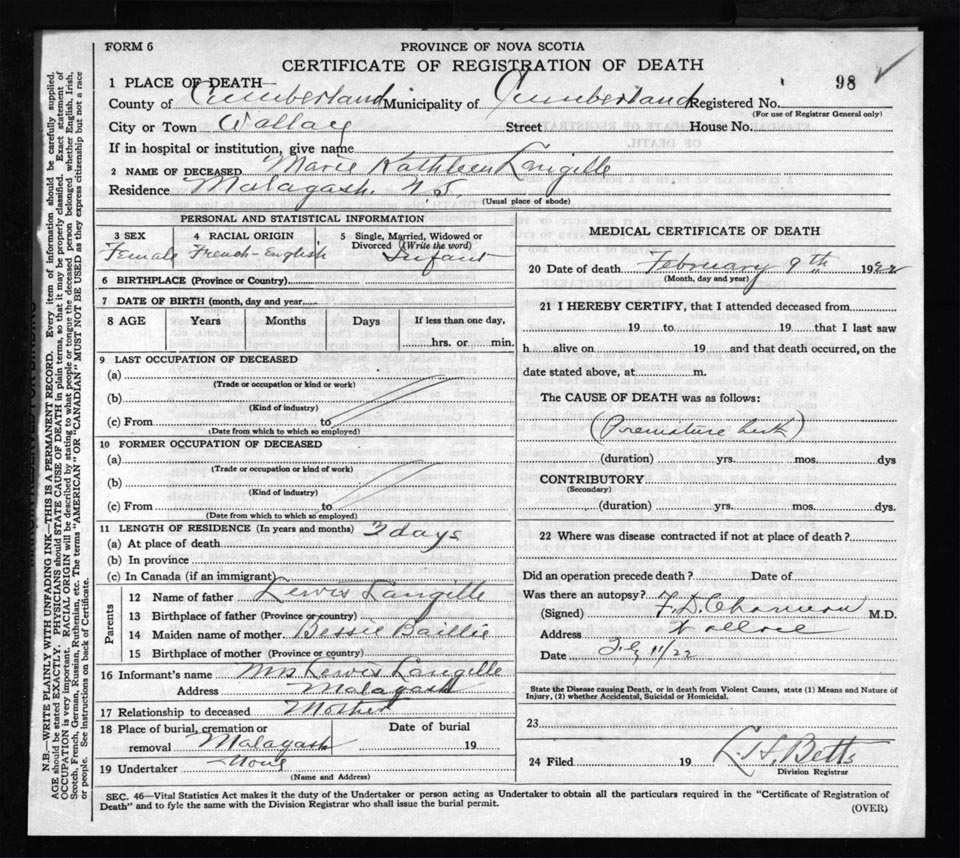 FORM 6
PROVINCE OF NOVA SCOTIA
CERTIFICATE OF REGISTRATION OF DEATH
98 ✓
1 PLACE OF DEATH
County of Cumberland Municipality of Cumberland Registered No.
(For use of Registrar General only)
City or Town Wallace Street House No.
If in hospital or institution, give name
2 NAME OF DECEASED Marie Kathleen Langille
Residence Malagash. N.S.
(Usual place of abode)
PERSONAL AND STATISTICAL INFORMATION
3 SEX
Female
4 RACIAL ORIGIN
French-English
5 Single, Married, Widowed or
Divorced (Write the word)
Infant
6 BIRTHPLACE (Province or Country)
7 DATE OF BIRTH (month, day and year)
8 AGE Years Months Days If less than one day,
hrs. or min.
9 LAST OCCUPATION OF DECEASED
(a)
(Trade or occupation or kind or work)
(b)
(Kind of industry)
(c) From to
(Date from which to which so employed)
10 FORMER OCCUPATION OF DECEASED
(a)
(Trade or occupation or kind of work)
(b)
(Kind of industry)
(c) From to
(Date from which to which so employed)
11 LENGTH OF RESIDENCE (In years and months) days
(a) At place of death
(b) In province
(c) In Canada (if an immigrant)
Parents
12 Name of father Lewis Langille
13 Birthplace of father (Province or country)
14 Maiden name of mother Bessie Baillie
15 Birthplace of mother (Province or country)
16 Informant's name Mrs Lewis Langille
Address Malagash
17 Relationship to deceased Mother
18 Place of burial, cremation or
removal Malagash
Date of burial
19
19 Undertaker None
(Name and Address)
MEDICAL CERTIFICATE OF DEATH
20 Date of death February 9th 1922
(Month, day and year)
21 I HEREBY CERTIFY, that I attended deceased from
19 to 19 that I last saw
h alive on 19 and that death occurred, on the
date stated above, at m.
The CAUSE OF DEATH was as follows:
(Premature birth)
(duration) yrs. mos. dys
CONTRIBUTORY
(Secondary)
(duration) yrs. mos. dys.
22 Where was disease contracted if not at place of death?
Did an operation precede death? Date of
Was there an autopsy?
(Signed) F. D. M.D.
Address Wallace
Date 11/22
State the Disease causing Death, or in death from Violent Causes, state (1) Means and Nature of
Injury, (2) whether Accidental, Suicidal or Homicidal.
23
24 Filed 19 Betts
Division Registrar
SEC. 46—Vital Statistics Act makes it the duty of the Undertaker or person acting as Undertaker to obtain all the particulars required in the "Certificate of Registration of
Death" and to fyle the same with the Division Registrar who shall issue the burial permit.
(OVER)
N.B.—WRITE PLAINLY WITH UNFADING INK—THIS IS A PERMANENT RECORD. Every item of information should be carefully supplied.
AGE should be stated EXACTLY. PHYSICIANS should STATE CAUSE OF DEATH in plain terms, so that it may be properly classified. Exact statement of
OCCUPATION is very important. RACIAL ORIGIN will be described by stating to what people or tongue the deceased person belonged whether English, Irish,
Scotch, French, German, Russian, Ruthenian, etc. The terms "AMERICAN" OR "CANADIAN" MUST NOT BE USED as they express citizenship but not a race
or people. See instructions on back of Certificate.